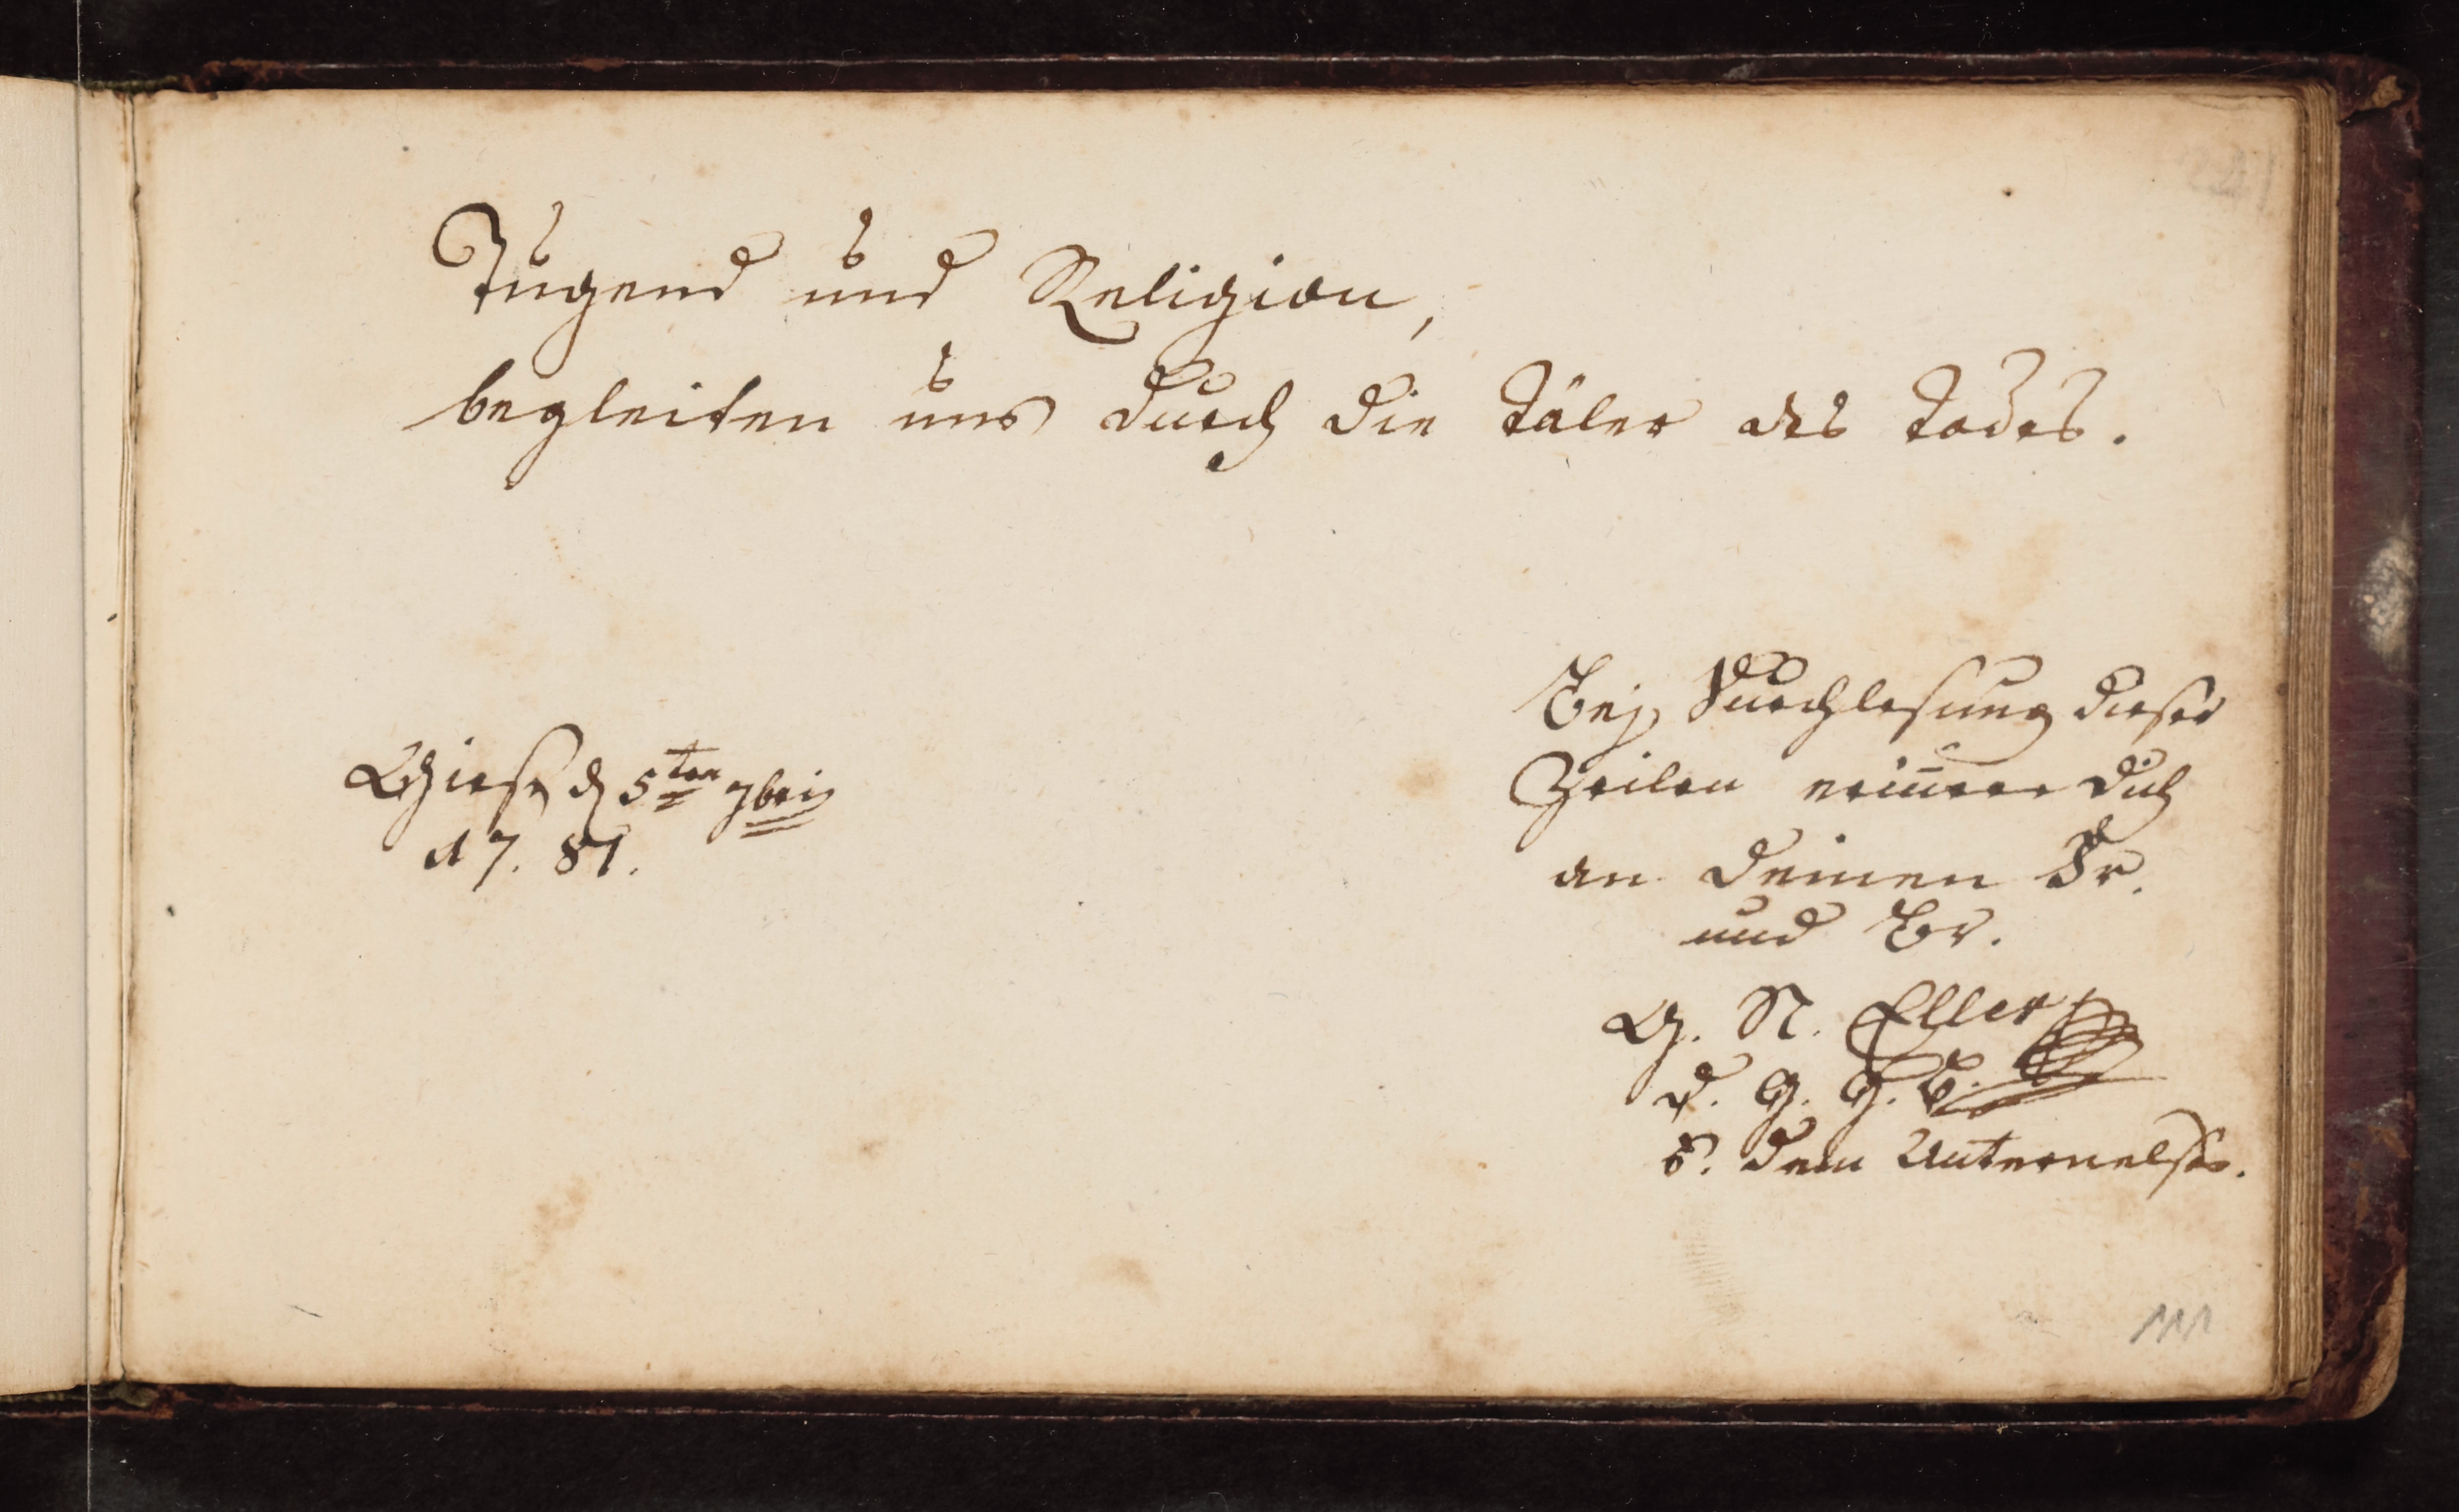 Tugend und Religion,
begleiten uns durch die täler des todes.
Giesen d 5ten 7bris
17. 81.
Bey Durchlesung dieser
Zeilen erin̄ere dich
an deinen Fr.
und Br.
G. N. Eller
d. G. G. B.
v. dem Unternelsb.
111